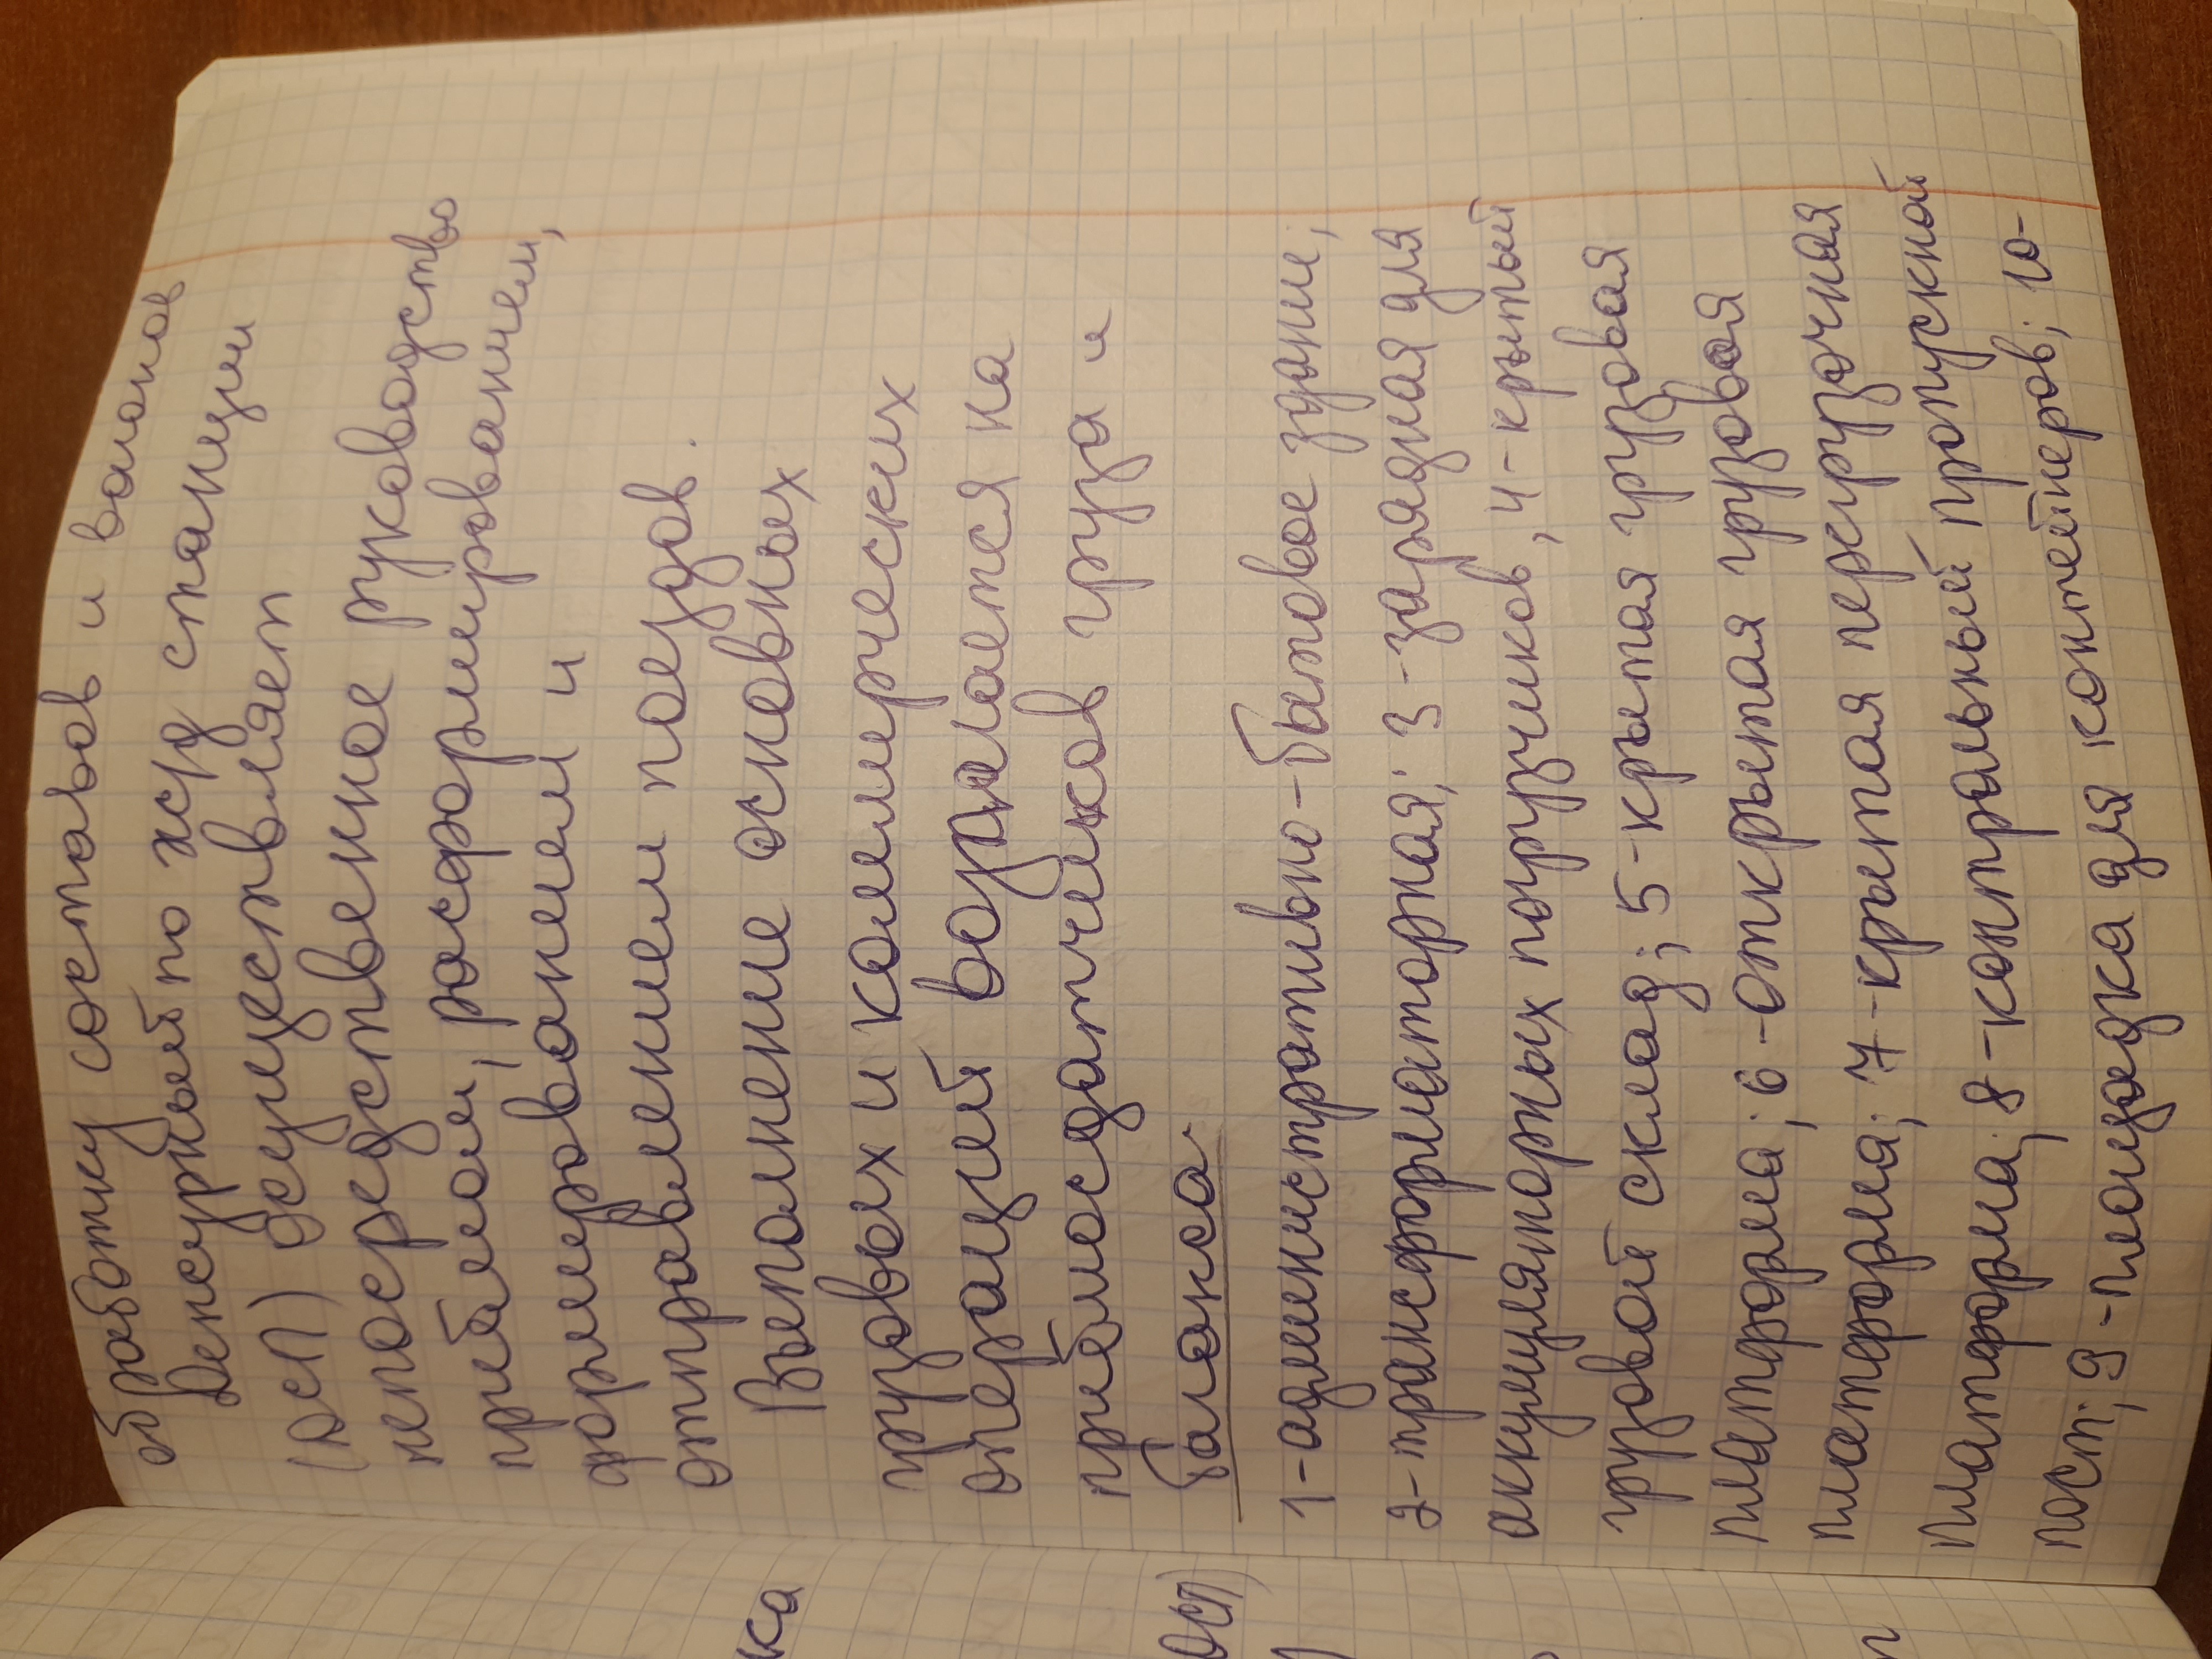 обработку составов и вагонов
Дежурный по жд станции
(ДСП) осуществляет
непосредственное руководство
прибытием, расформированием,
формированием и
отправлением поездов.
Выполнение основных
грузовых и коммерческих
операций возлагается на
приёмосдатчиков груза и
багажа.
1-административно-бытовое здание;
2-трансформаторная; 3-зарядная для
аккумуляторных погрузчиков, 4-крытый
грузовой склад; 5-крытая грузовая
платформа; 6-открытая грузовая
платформа; 7-крытая перегрузочная
платформа; 8-контрольный пропускной
пост; 9-площадка для контейнеров; 10-
ка
ДСП)